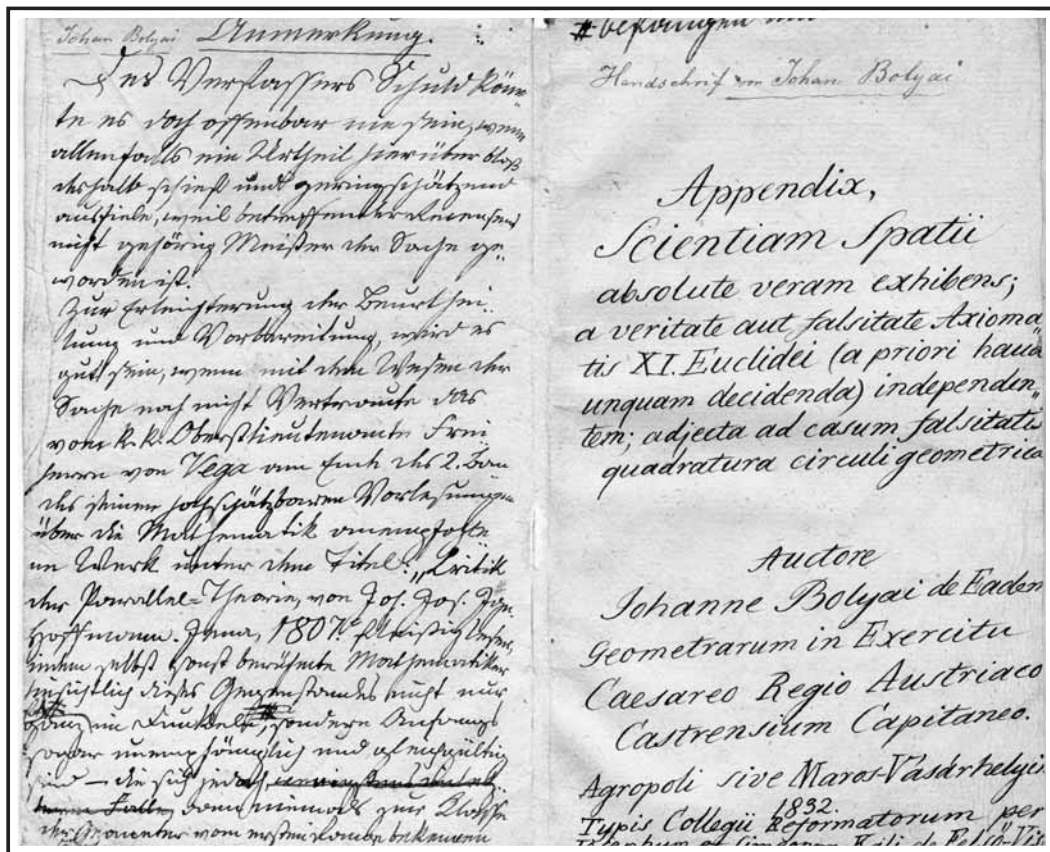 Johan Bolyai Anmerkung.
Des Verfassers Schuld könn-
te es doch offenbar nie sein, wenn
allenfalls ein Urtheil hierüber bloß
deshalb schief und geringschätzend
ausfiele, weil betreffender Recensent
nicht gehörig Meister der Sache ge-
worden ist.
Zur Erleichterung der Beurthei-
lung und Vorbereitung, wird es
gut sein, wenn mit dem Wesen der
Sache noch nicht Vertraute das
vom k. k. Oberstlieutenante Frei
herrn von Vega am Ende des 2. Ban
des seiner hochschätzbaren Vorlesungen
über die Mathematik anempfohle
ne Werk unter dem Titel: „Critik
der Parallel-Theorie, von Jos. Jos. Ign.
Hoffmann. Jena, 1807." fleißig lesen,
indem selbst sonst berühmte Mathematiker
hinsichtlich dieses Gegenstandes nicht nur
ganz im Dunkel, sondern Anfangs
sogar unempfänglich und gleichgültig
sind — die sich jedoch
dann niemals zur Classe
der Geometer vom ersten Range bekennen
Handschrif von Johan Bolyai
Appendix,
Scientiam Spatii
absolute veram exhibens;
a veritate aut falsitate Axioma„
tis XI. Euclidei (a priori haud
unquam decidenda) independen„
tem; adjecta ad casum falsitatis
quadratura circuli geometrica
Auctore
Johanne Bolyai de Eadem
Geometrarum in Exercitu
Caesareo Regio Austriaco
Castrensium Capitaneo.
Agropoli sive Maros-Vásárhelyini
1832.
Typis Collegii Reformatorum per